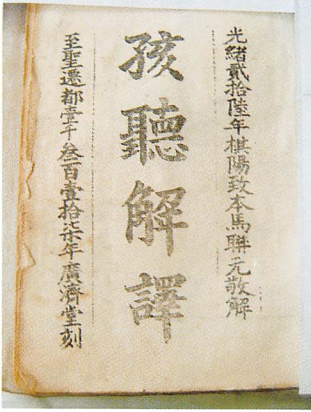 光緒貳拾陸年棋陽致本馬聯元敬解
孩聽解譯
至聖遷都壹千叁百壹拾柒年廣濟堂刻